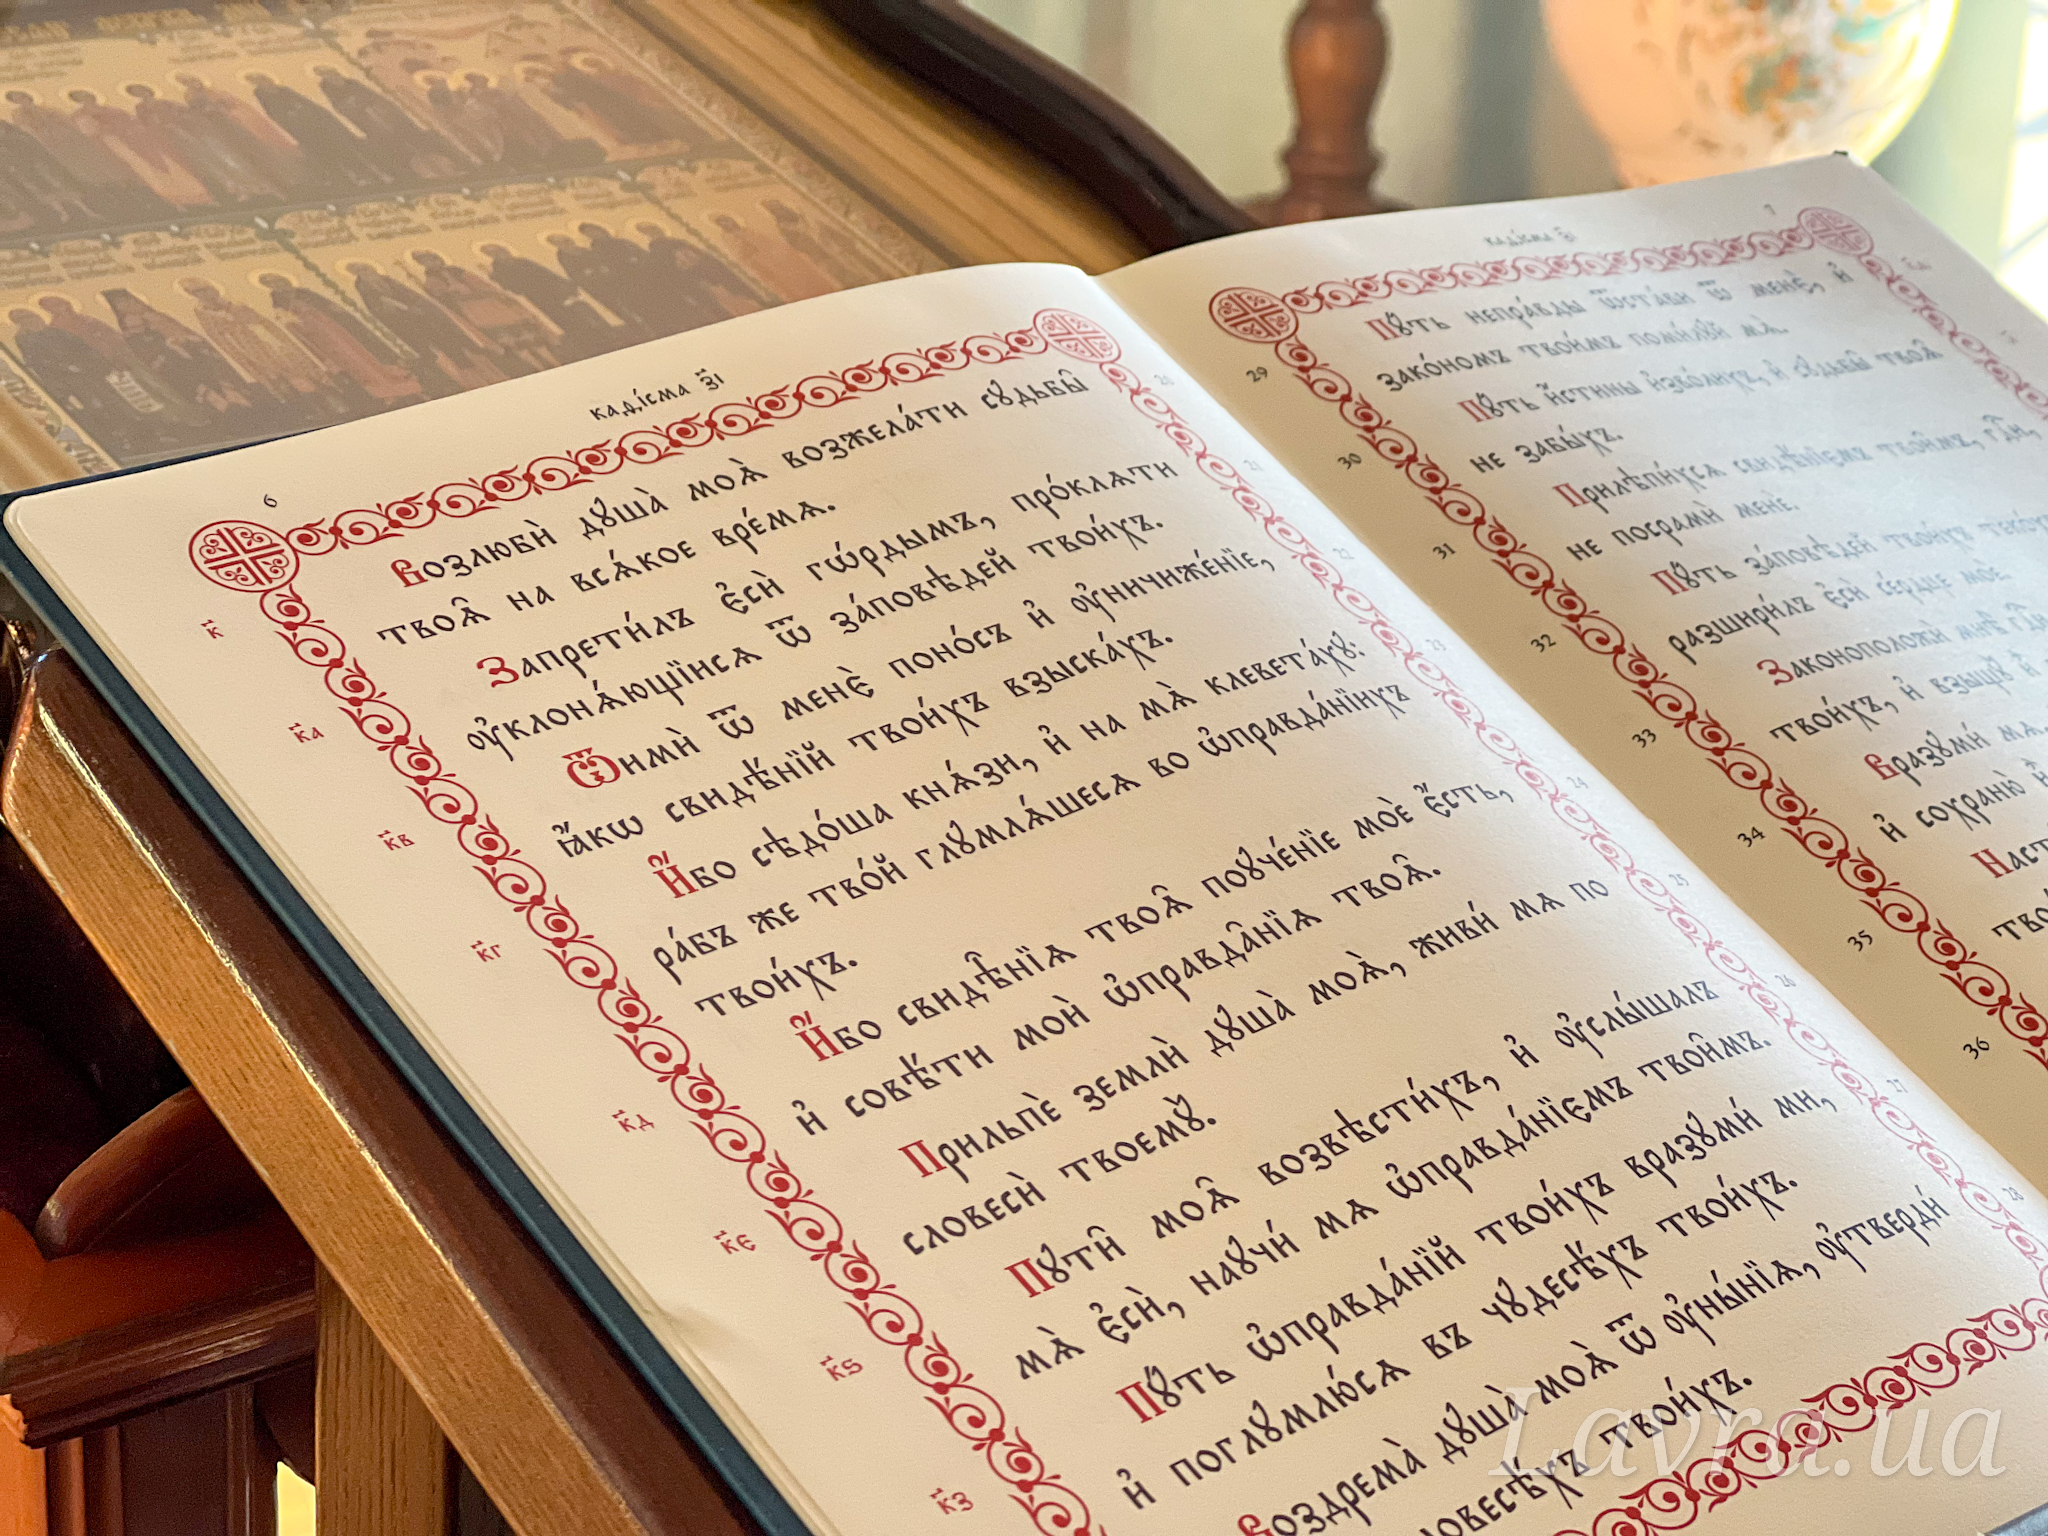 6
каѳі́сма з҃і
Возлюбѝ дꙋша̀ моѧ̀ возжела́ти сꙋдьбы̑
твоѧ̑ на всѧ́кое вре́мѧ.
Запрети́лъ є҆сѝ гѡ́рдымъ, про́клѧти
ᲂу҆клонѧ́ющїисѧ ѿ за́повѣдей твои́хъ.
Ѿимѝ ѿ менє̀ поно́съ и҆ ᲂу҆ничиже́нїе,
ꙗ҆́кѡ свидѣ́нїй твои́хъ взыска́хъ.
И҆́бо сѣдо́ша кнѧ́зи, и҆ на мѧ̀ клевета́хꙋ:
ра́бъ же тво́й глꙋмлѧ́шесѧ во ѡ҆правда́нїихъ
твои́хъ.
И҆́бо свидѣ̑нїѧ твоѧ̑ поꙋче́нїе моѐ є҆́сть,
и҆ совѣ́ти моѝ ѡ҆правда̑нїѧ твоѧ̑.
Прильпѐ землѝ дꙋша̀ моѧ̀, живи́ мѧ по
словесѝ твоемꙋ̀.
Пꙋти̑ моѧ̑ возвѣсти́хъ, и҆ ᲂу҆слы́шалъ
мѧ̀ є҆сѝ, наꙋчи́ мѧ ѡ҆правда́нїємъ твои̑мъ.
Пꙋ́ть ѡ҆правда́нїй твои́хъ вразꙋми́ ми,
и҆ поглꙋмлю́сѧ въ чꙋдесѣ́хъ твои́хъ.
Воздрема̀ дꙋша̀ моѧ̀ ѿ ᲂу҆ны́нїѧ, ᲂу҆тверди́
словесѣ́хъ твои́хъ.
к҃
к҃а
к҃в
к҃г
к҃д
к҃є
к҃ѕ
к҃з
20
21
22
23
24
25
26
27
28
7
каѳі́сма з҃і
Пꙋ́ть непра́вды ѿста́ви ѿ менє̀, и҆
зако́номъ твои́мъ поми́лꙋй мѧ̀.
Пꙋ́ть и҆́стины и҆зво́лихъ, и҆ сꙋдьбы̑ твоѧ̑
не забы́хъ.
Прилѣпи́хсѧ свидѣ́нїємъ твои̑мъ, гд҇и,
не посрамѝ менѐ.
Пꙋ́ть за́повѣдей твои́хъ теко́хъ
разшири́лъ є҆сѝ се́рдце моѐ.
Законоположѝ мнѣ̀ гд҇и
твои́хъ, и҆ взыщꙋ̀ и҆
Вразꙋми́ мѧ
и҆ сохраню̀
Наст
тво
29
30
31
32
33
34
35
36
Lavra.ua